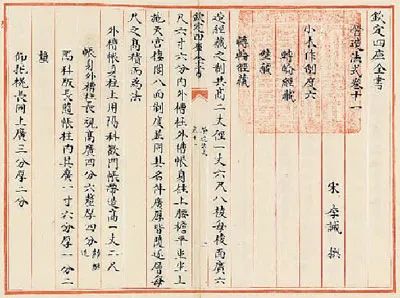 欽定四庫全書
營造法式卷十一
宋 李誡 撰
小木作制度六
轉輪經藏
壁藏
轉輪經藏
造經藏之制共高二丈徑一丈六尺八棱每棱面廣六
欽定四庫全書
尺六寸六分内外槽柱外槽帳身柱上腰檐平坐坐上
施天宫樓閣八面制度並同其名件廣厚皆隨逐層每
尺之高積而爲法
外槽帳身柱上用隔科歡門帳帶造高一丈二尺
帳身外槽柱長視高廣四分六釐厚四分歸瓣造
隔科版長隨帳柱内其廣一寸六分厚一分二
釐
仰托榥長同上廣三分厚二分